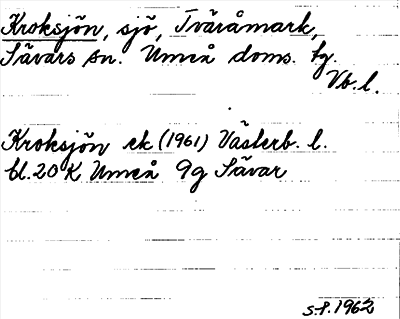 Kroksjön, sjö, Tväråmark,
Sävars sn. Umeå doms. tg.
Vb. l.
Kroksjön ek (1961) Västerb. l.
bl. 20 K Umeå 9g Sävar
s. f. 1962